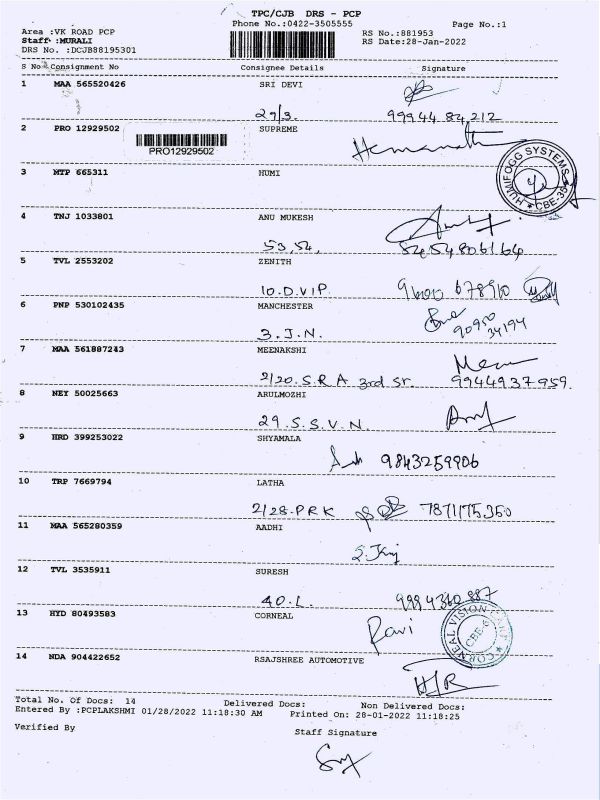 TPC/CJB DRS - PCP
Phone No.:0422-3505555
Page No.:1
Area :VK ROAD PCP
RS No.:881953
Staff :MURALI
RS Date:28-Jan-2022
DRS No. :DCJB88195301
S No Consignment No Consignee Details Signature
1 MAA 565520426 SRI DEVI
29/3. 99944 84,212
2 PRO 12929502 SUPREME
PRO12929502
Hemanath
3 MTP 665311 HUMI
HUMIFOGG SYSTEMS
4 TNJ 1033801 ANU MUKESH
53,54,
5 TVL 2553202 ZENITH
10.D.V.I.P.
6 PNP 530102435 MANCHESTER
3.J.N. 90950 34194
7 MAA 561887243 MEENAKSHI
2/20.S.R.A 3rd Sr. 9944937959
8 NEY 50025663 ARULMOZHI
29.S.S.V.N.
9 HRD 399253022 SHYAMALA
9843259906
10 TRP 7669794 LATHA
2/28.P.R.K 7871175350
11 MAA 565280359 AADHI
12 TVL 3535911 SURESH
40.L.
13 HYD 80493583 CORNEAL
Ravi
CORNEAL VISION
14 NDA 904422652 RSAJSHREE AUTOMOTIVE
Total No. Of Docs: 14 Delivered Docs: Non Delivered Docs:
Entered By :PCPLAKSHMI 01/28/2022 11:18:30 AM Printed On: 28-01-2022 11:18:25
Verified By
Staff Signature